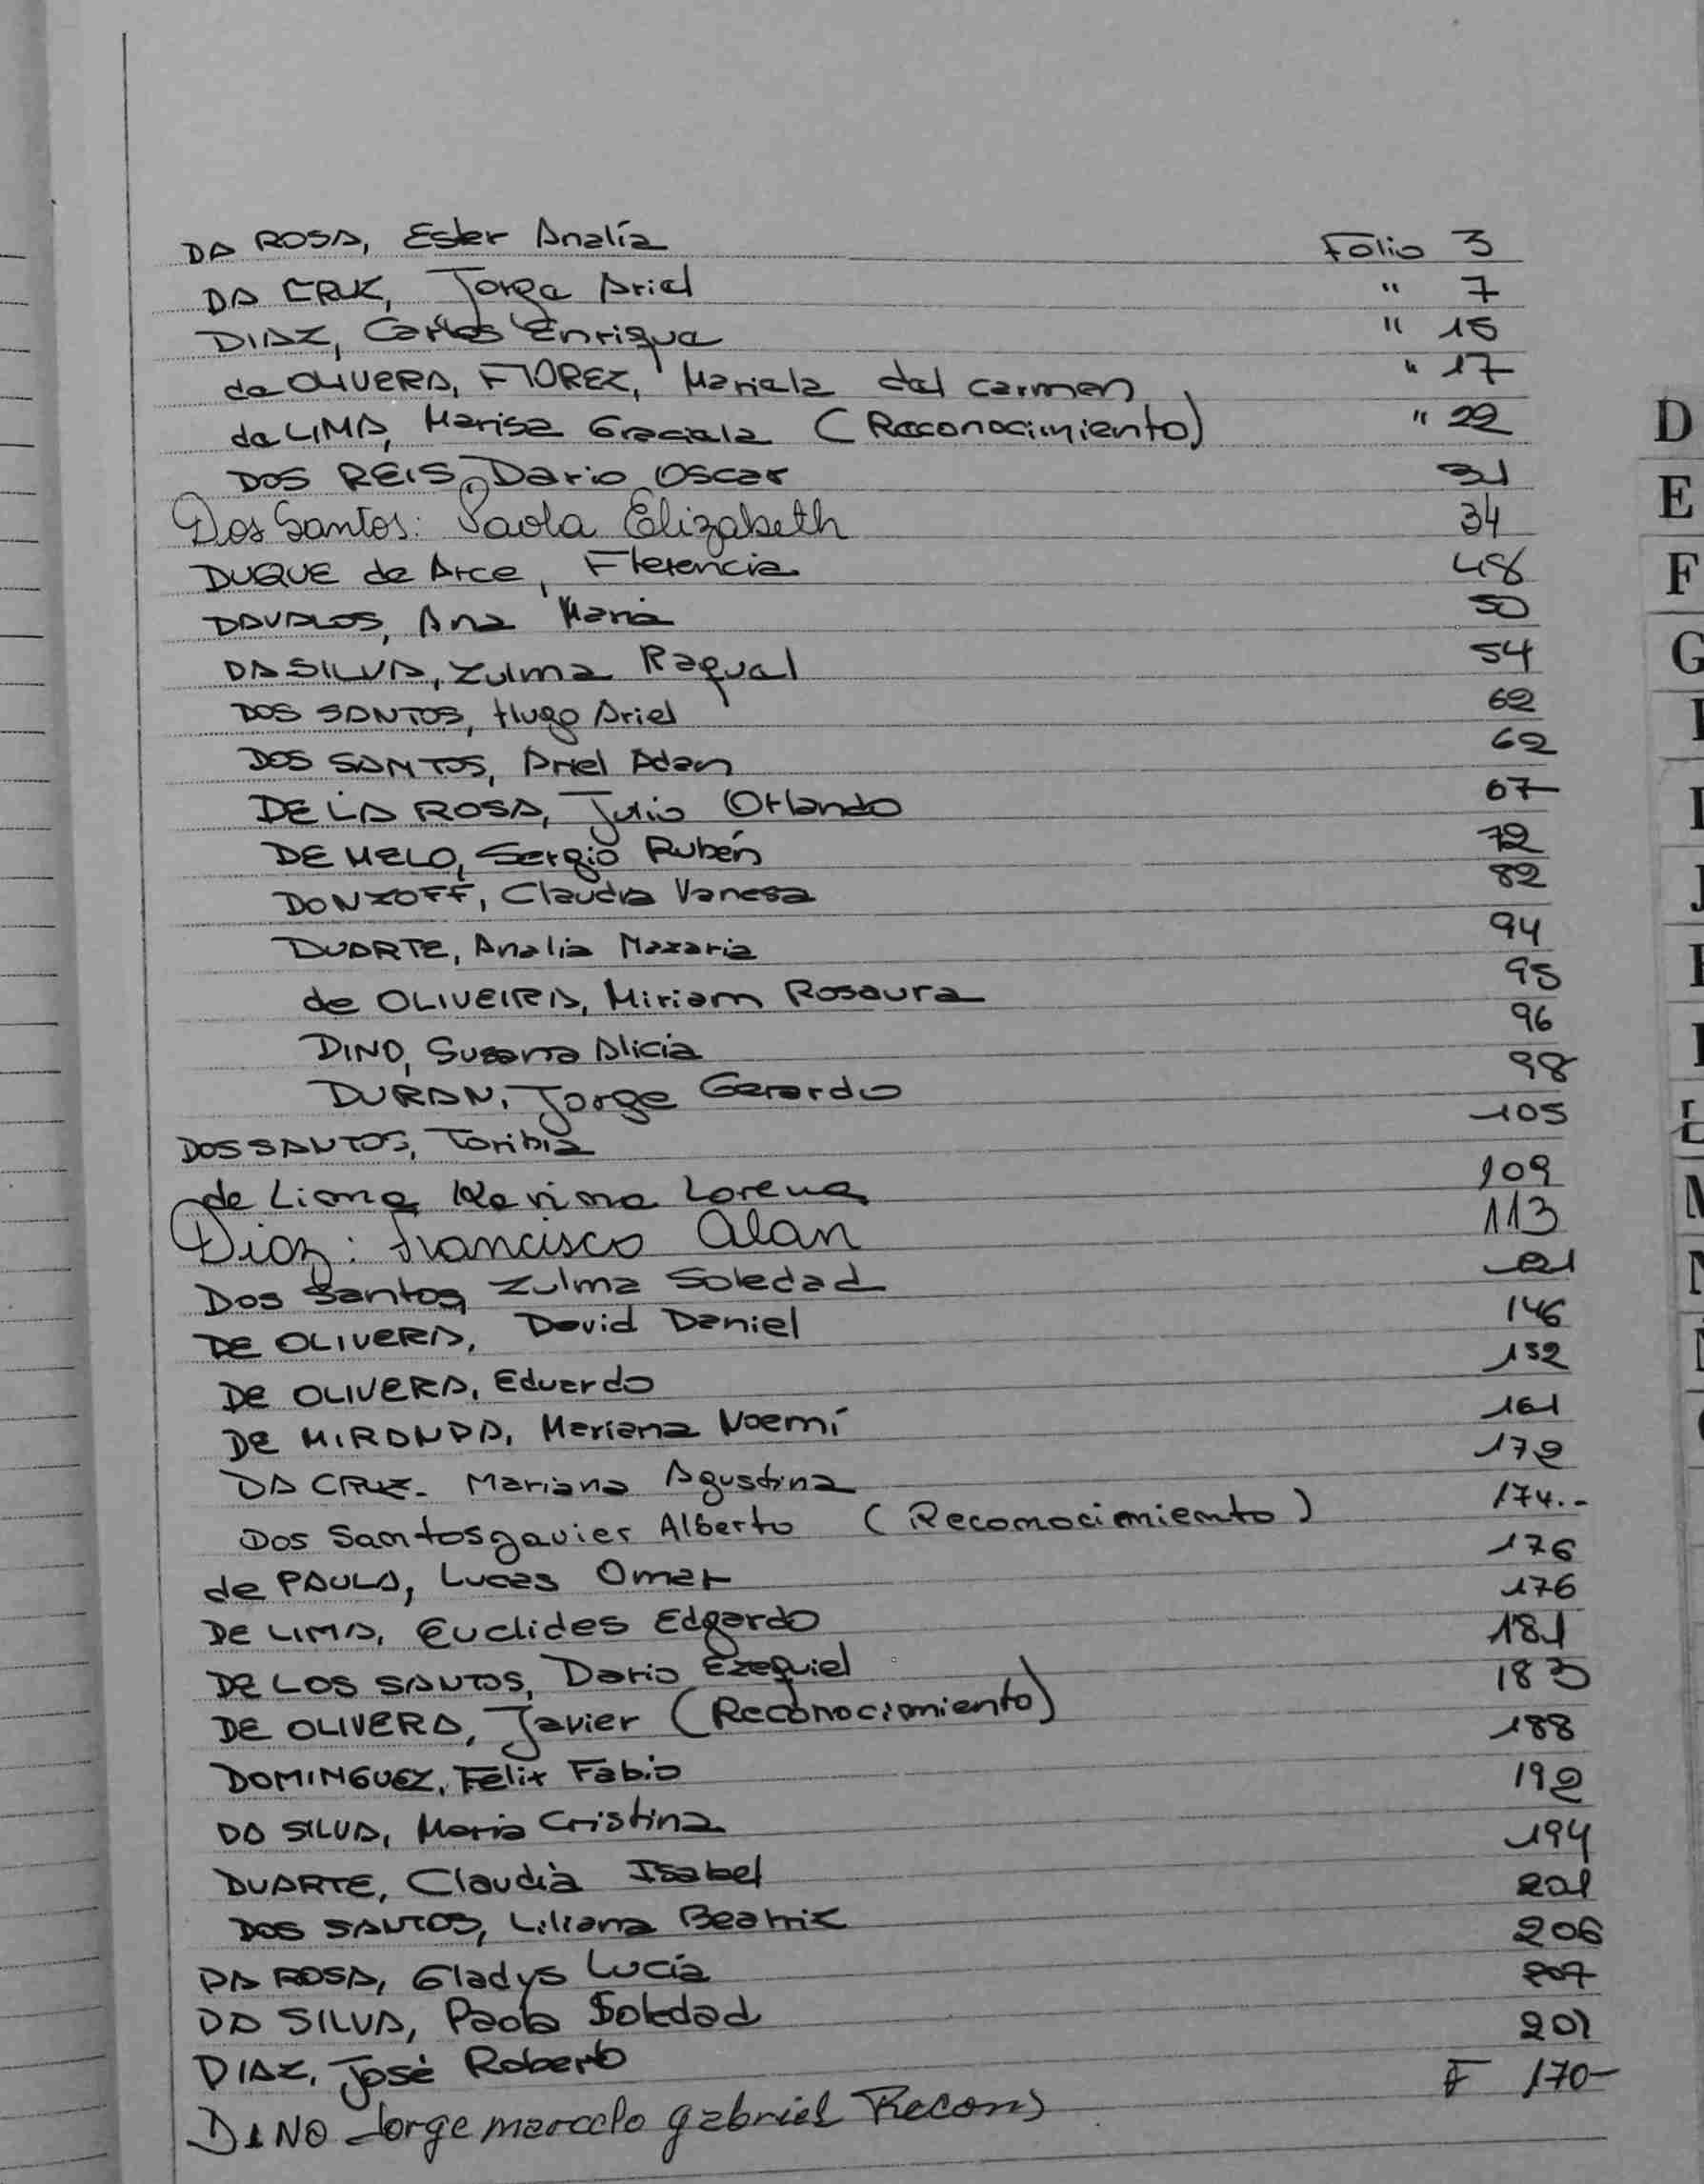 DA ROSA, Ester Analía Folio 3
DA CRUZ, Jorge Ariel " 7
DIAZ, Carlos Enrique " 15
de OLIVERA, FLOREZ, Mariela del Carmen " 17
de LIMA, Marisa Graciela (Reconocimiento) " 22
DOS REIS, Dario Oscar 31
Dos Santos: Paola Elizabeth 34
DUQUE de Arce, Florencia 48
DAVALOS, Ana María 50
DA SILVA, Zulma Raquel 54
DOS SANTOS, Hugo Ariel 62
DOS SANTOS, Ariel Adan 62
DE LA ROSA, Julio Orlando 67
DE MELO, Sergio Rubén 72
DONZOFF, Claudia Vanesa 82
DUARTE, Analia Nazaria 94
de OLIVEIRA, Miriam Rosaura 95
DINO, Susana Alicia 96
DURAN, Jorge Gerardo 98
DOS SANTOS, Toribia 105
de Lima Karina Lorena 109
Diaz: Francisco Alan 113
Dos Santos, Zulma Soledad 121
DE OLIVERA, David Daniel 146
DE OLIVERA, Eduardo 152
DE MIRANDA, Mariana Noemí 161
DA CRUZ. Mariana Agustina 172
Dos Santos Javier Alberto (Reconocimiento) 174..-
de PAULA, Lucas Omar 176
DE LIMA, Euclides Edgardo 176
DE LOS SANTOS, Dario Ezequiel 181
DE OLIVERA, Javier (Reconocimiento) 183
DOMINGUEZ, Félix Fabio 188
DA SILVA, Maria Cristina 192
DUARTE, Claudia Isabel 194
DOS SANTOS, Liliana Beatriz 201
DA ROSA, Gladys Lucía 206
DA SILVA, Paola Soledad 207
DIAZ, José Roberto 201
DINO Jorge marcelo gabriel Recon) F 170-
D
E
F
G
J
M